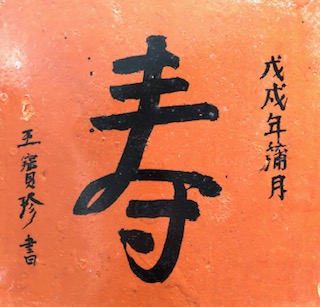 戊戌年蒲月
寿
王寶珍書